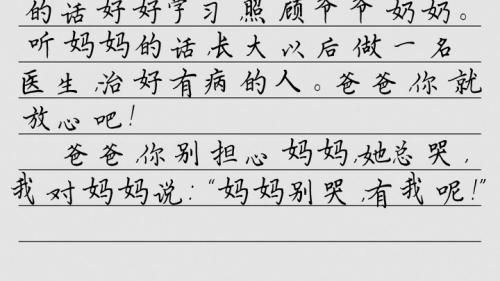 的话好好学习,照顾爷爷奶奶。
听妈妈的话,长大以后做一名
医生,治好有病的人。爸爸,你就
放心吧!
爸爸,你别担心妈妈,她总哭,
我对妈妈说:“妈妈别哭,有我呢!”